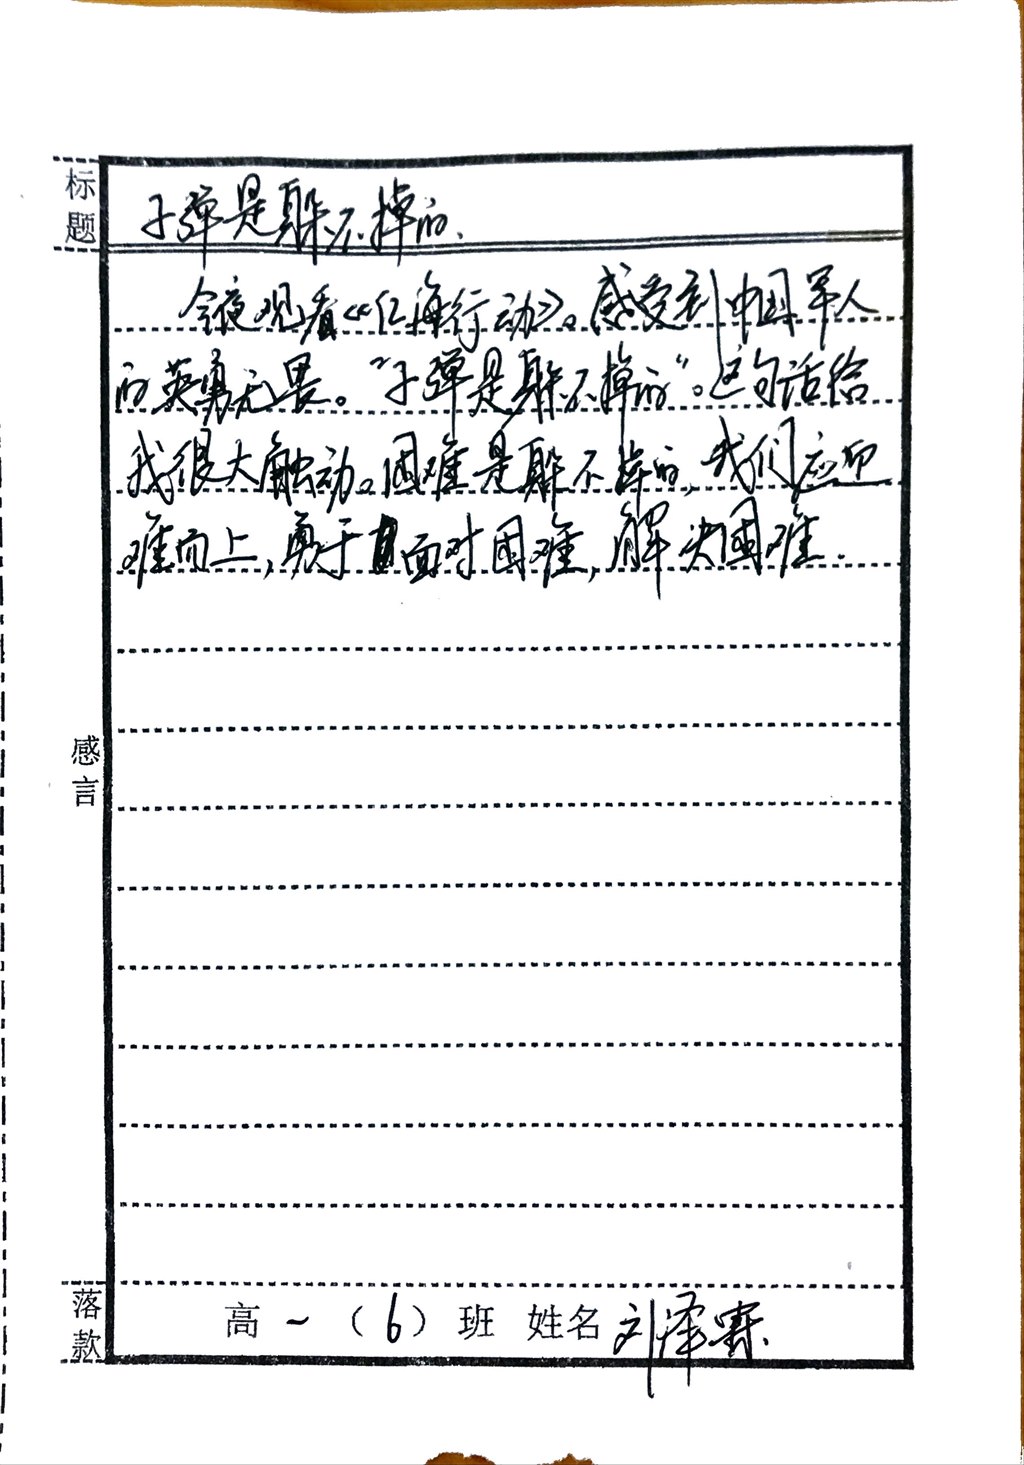 标题
子弹是躲不掉的.
今夜观看《红海行动》。感受到中国军人
的英勇无畏。“子弹是躲不掉的”。这句话给
我很大触动。困难是躲不掉的,我们应迎
难而上,勇于面对困难,解决困难.
感言
落款
高一(6)班 姓名 刘泽赛